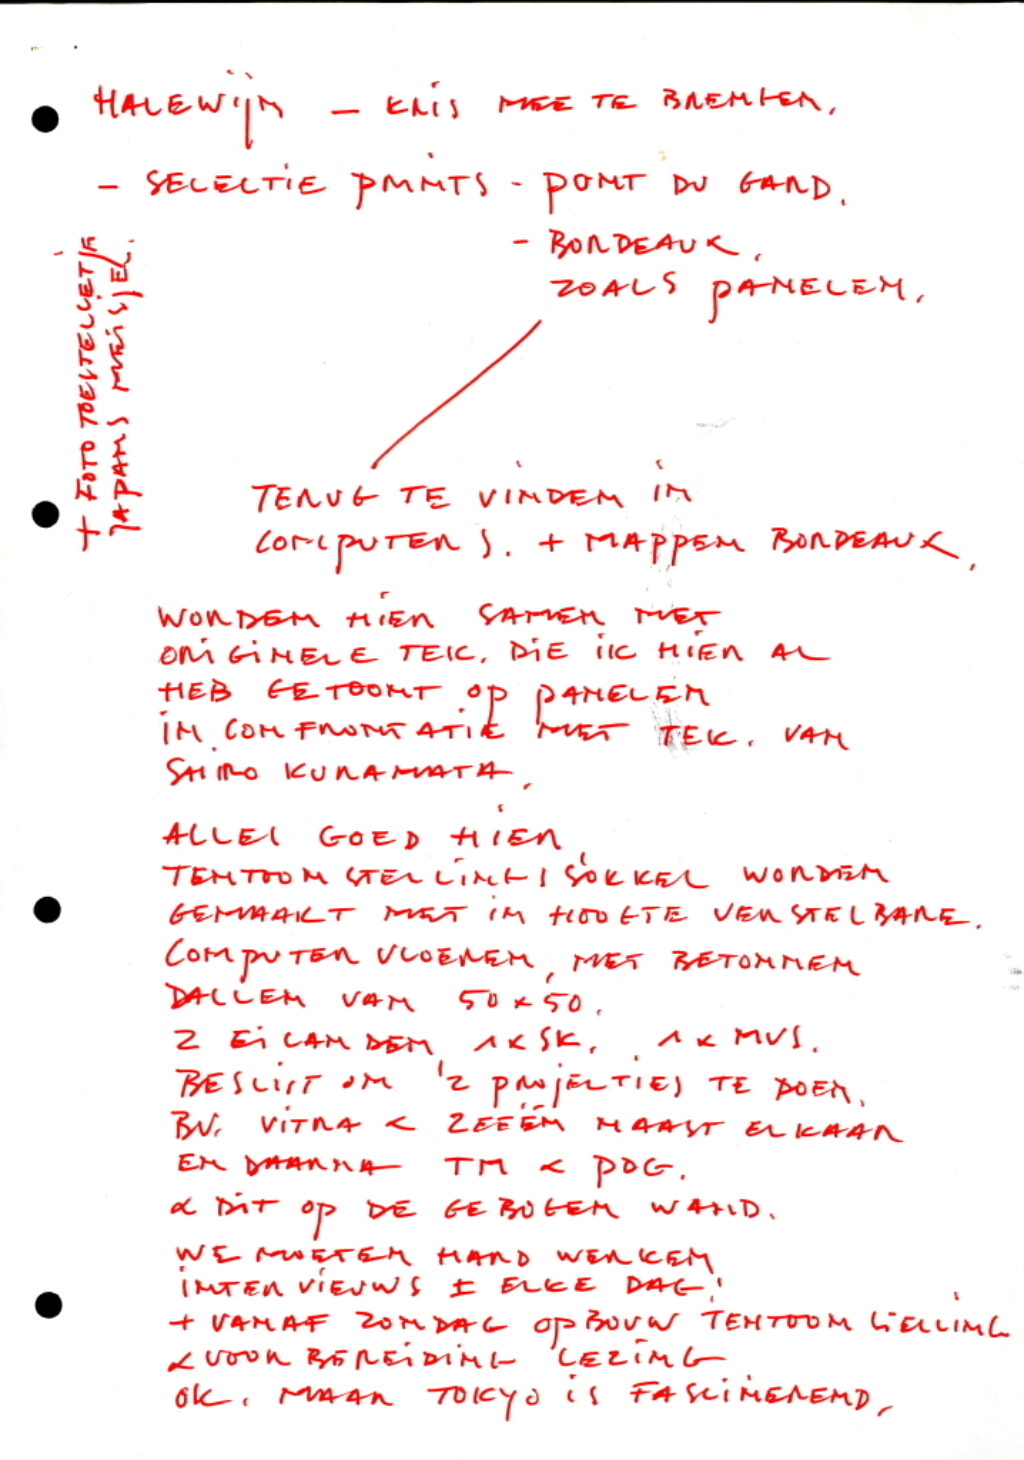 HALEWIJN – KRIS MEE TE BRENGEN.
- SELECTIE PRINTS - PONT DU GARD.
- BORDEAUX,
ZOALS PANELEN.
+ FOTO TOESTELLETJE
JAPANS MEISJE.
TERUG TE VINDEN IN
COMPUTERS. + MAPPEN BORDEAUX.
WORDEN HIER SAMEN MET
ORIGINELE TEK. DIE IK HIER AL
HEB GETOONT OP PANELEN
IN CONFRONTATIE MET TEK. VAN
SHIRO KURAMATA.
ALLES GOED HIER,
TENTOONSTELLINGSSOKKEL WORDEN
GEMAAKT MET IN HOOGTE VERSTELBARE.
COMPUTER VLOEREN, MET BETONNEN
DALLEN VAN 50 x 50.
2 EILANDEN 1 x SK. 1 x MVS.
BESLIST OM 2 PROJECTIES TE DOEN.
BV. VITRA & ZEEËN NAAST ELKAAR
EN DAARNA TM & PDG.
& DIT OP DE GEBOGEN WAND.
WE MOETEN HARD WERKEN
INTERVIEUWS ± ELKE DAG!
+ VANAF ZONDAG OPBOUW TENTOONSTELLING
& VOORBEREIDING LEZING
OK. MAAR TOKYO IS FASCINEREND,